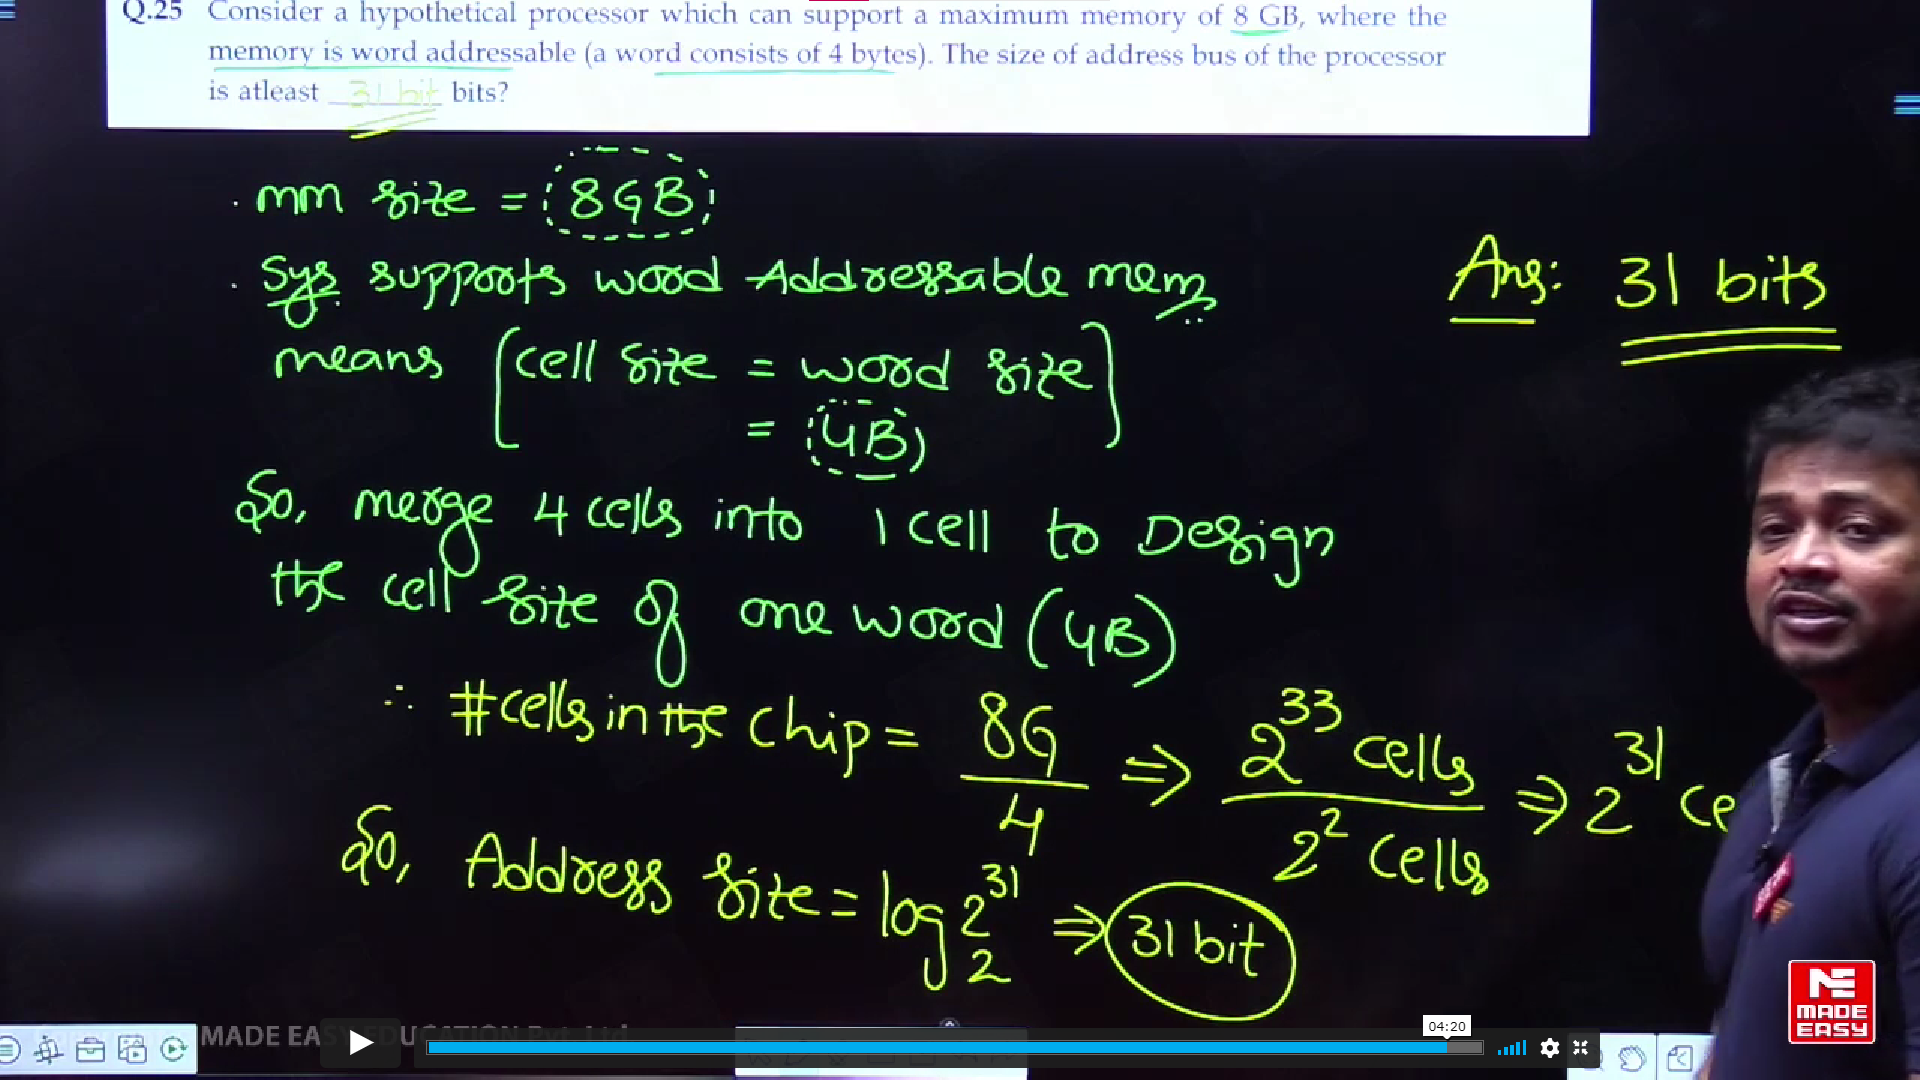 Q.25 Consider a hypothetical processor which can support a maximum memory of 8 GB, where the
memory is word addressable (a word consists of 4 bytes). The size of address bus of the processor
is atleast 31 bit bits?
. mm size = 8GB
. Sys supports word Addressable mem
means [cell size = word size]
= (4B)
So, merge 4 cells into 1 cell to Design
the cell size of one word (4B)
∴ #cells in the chip = 8G/4 ⇒ 2^33 cells/2^2 cells ⇒ 2^31 ce
So, Address size = log_2 2^31 ⇒ 31 bit
Ans: 31 bits
MADE EASY EDUCATION Pvt. Ltd
04:20
ME
MADE
EASY